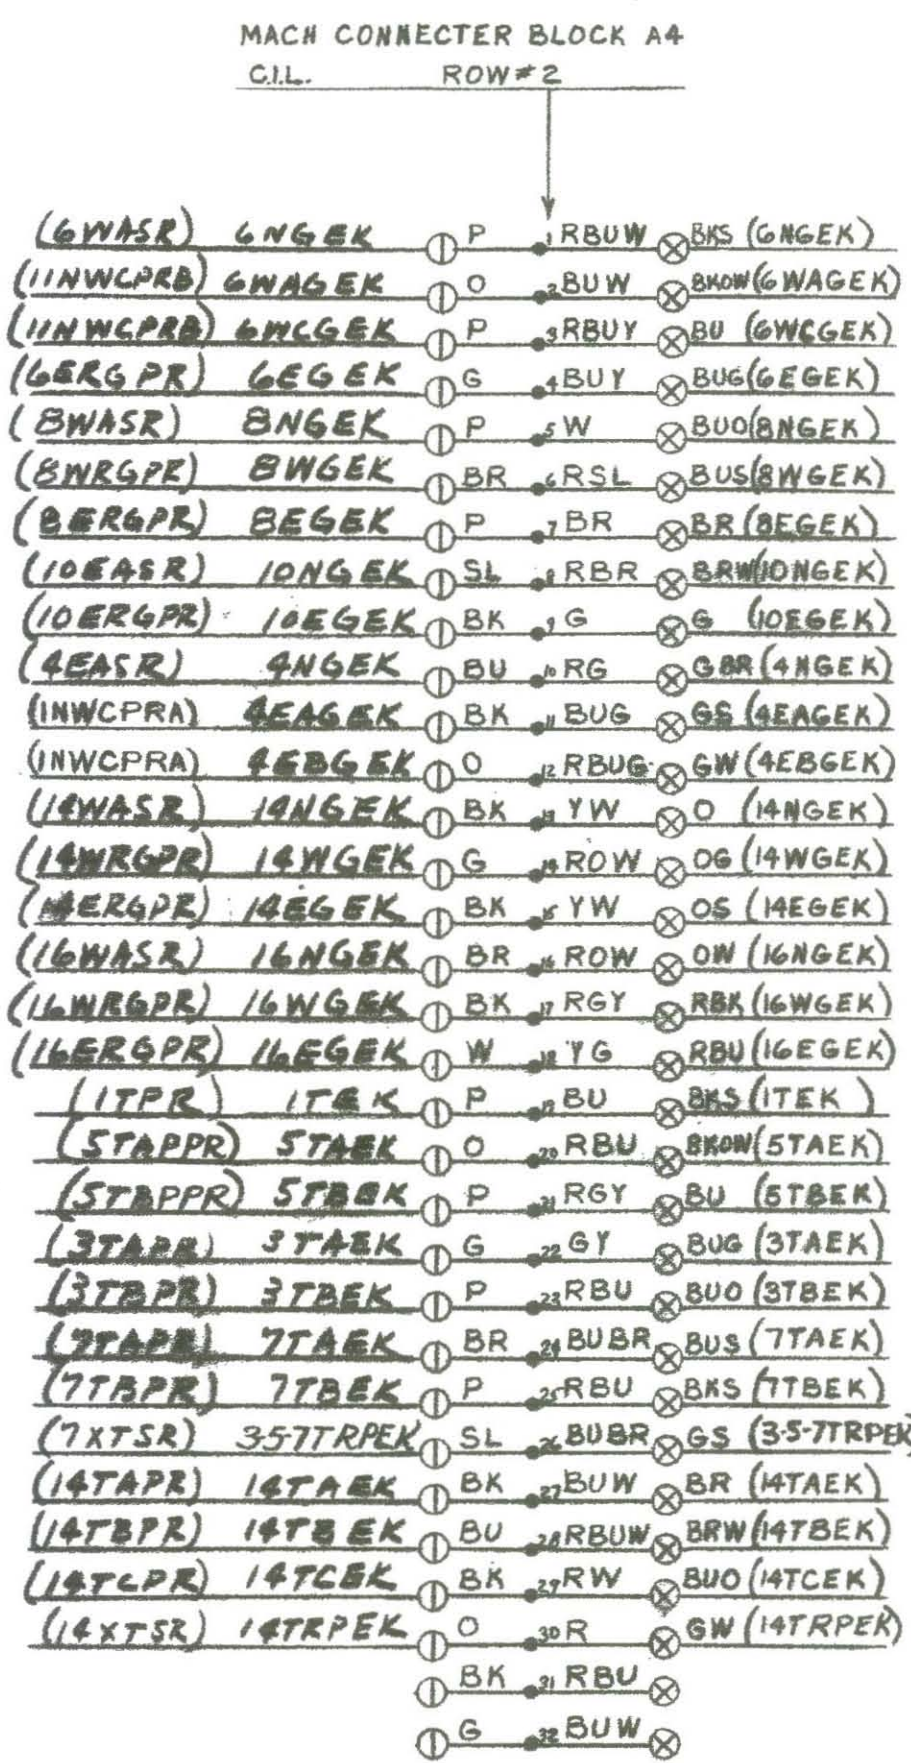 MACH CONNECTER BLOCK A4
C.I.L. ROW #2
(6WASR) 6NGEK P 1 RBUW BKS (6NGEK)
(11NWCPRB) 6WAGEK O 2 BUW BKOW (6WAGEK)
(11NWCPRB) 6WCGEK P 3 RBUY BU (6WCGEK)
(6ERGPR) 6EGEK G 4 BUY BUG (6EGEK)
(8WASR) 8NGEK P 5 W BUO (8NGEK)
(8WRGPR) 8WGEK BR 6 RSL BUS (8WGEK)
(8ERGPR) 8EGEK P 7 BR BR (8EGEK)
(10EASR) 10NGEK SL 8 RBR BRW (10NGEK)
(10ERGPR) 10EGEK BK 9 G G (10EGEK)
(4EASR) 4NGEK BU 10 RG GBR (4NGEK)
(1NWCPRA) 4EAGEK BK 11 BUG GS (4EAGEK)
(1NWCPRA) 4EBGEK O 12 RBUG GW (4EBGEK)
(14WASR) 14NGEK BK 13 YW O (14NGEK)
(14WRGPR) 14WGEK G 14 ROW OG (14WGEK)
(14ERGPR) 14EGEK BK 15 YW OS (14EGEK)
(16WASR) 16NGEK BR 16 ROW OW (16NGEK)
(16WRGPR) 16WGEK BK 17 RGY RBK (16WGEK)
(16ERGPR) 16EGEK W 18 YG RBU (16EGEK)
(1TPR) 1TEK P 19 BU BKS (1TEK)
(5TAPPR) 5TAEK O 20 RBU BKOW (5TAEK)
(5TBPPR) 5TBEK P 21 RGY BU (5TBEK)
(3TAPR) 3TAEK G 22 GY BUG (3TAEK)
(3TBPR) 3TBEK P 23 RBU BUO (3TBEK)
(7TAPR) 7TAEK BR 24 BUBR BUS (7TAEK)
(7TBPR) 7TBEK P 25 RBU BKS (7TBEK)
(7XTSR) 3-5-7TRPEK SL 26 BUBR GS (3-5-7TRPEK)
(14TAPR) 14TAEK BK 27 BUW BR (14TAEK)
(14TBPR) 14TBEK BU 28 RBUW BRW (14TBEK)
(14TCPR) 14TCEK BK 29 RW BUO (14TCEK)
(14XTSR) 14TRPEK O 30 R GW (14TRPEK)
BK 31 RBU
G 32 BUW